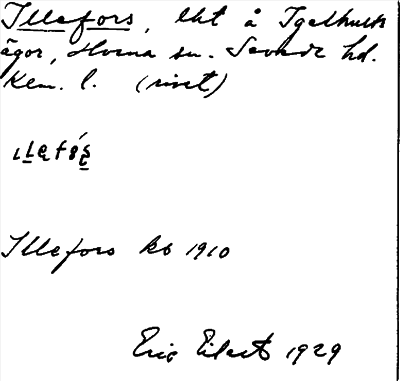 Illefors, lht å Igelhults
ägor, Hvena sn. Sevede hd.
Kem. l. (rivet)
Illefors kb 1910
Eric Eilert 1929